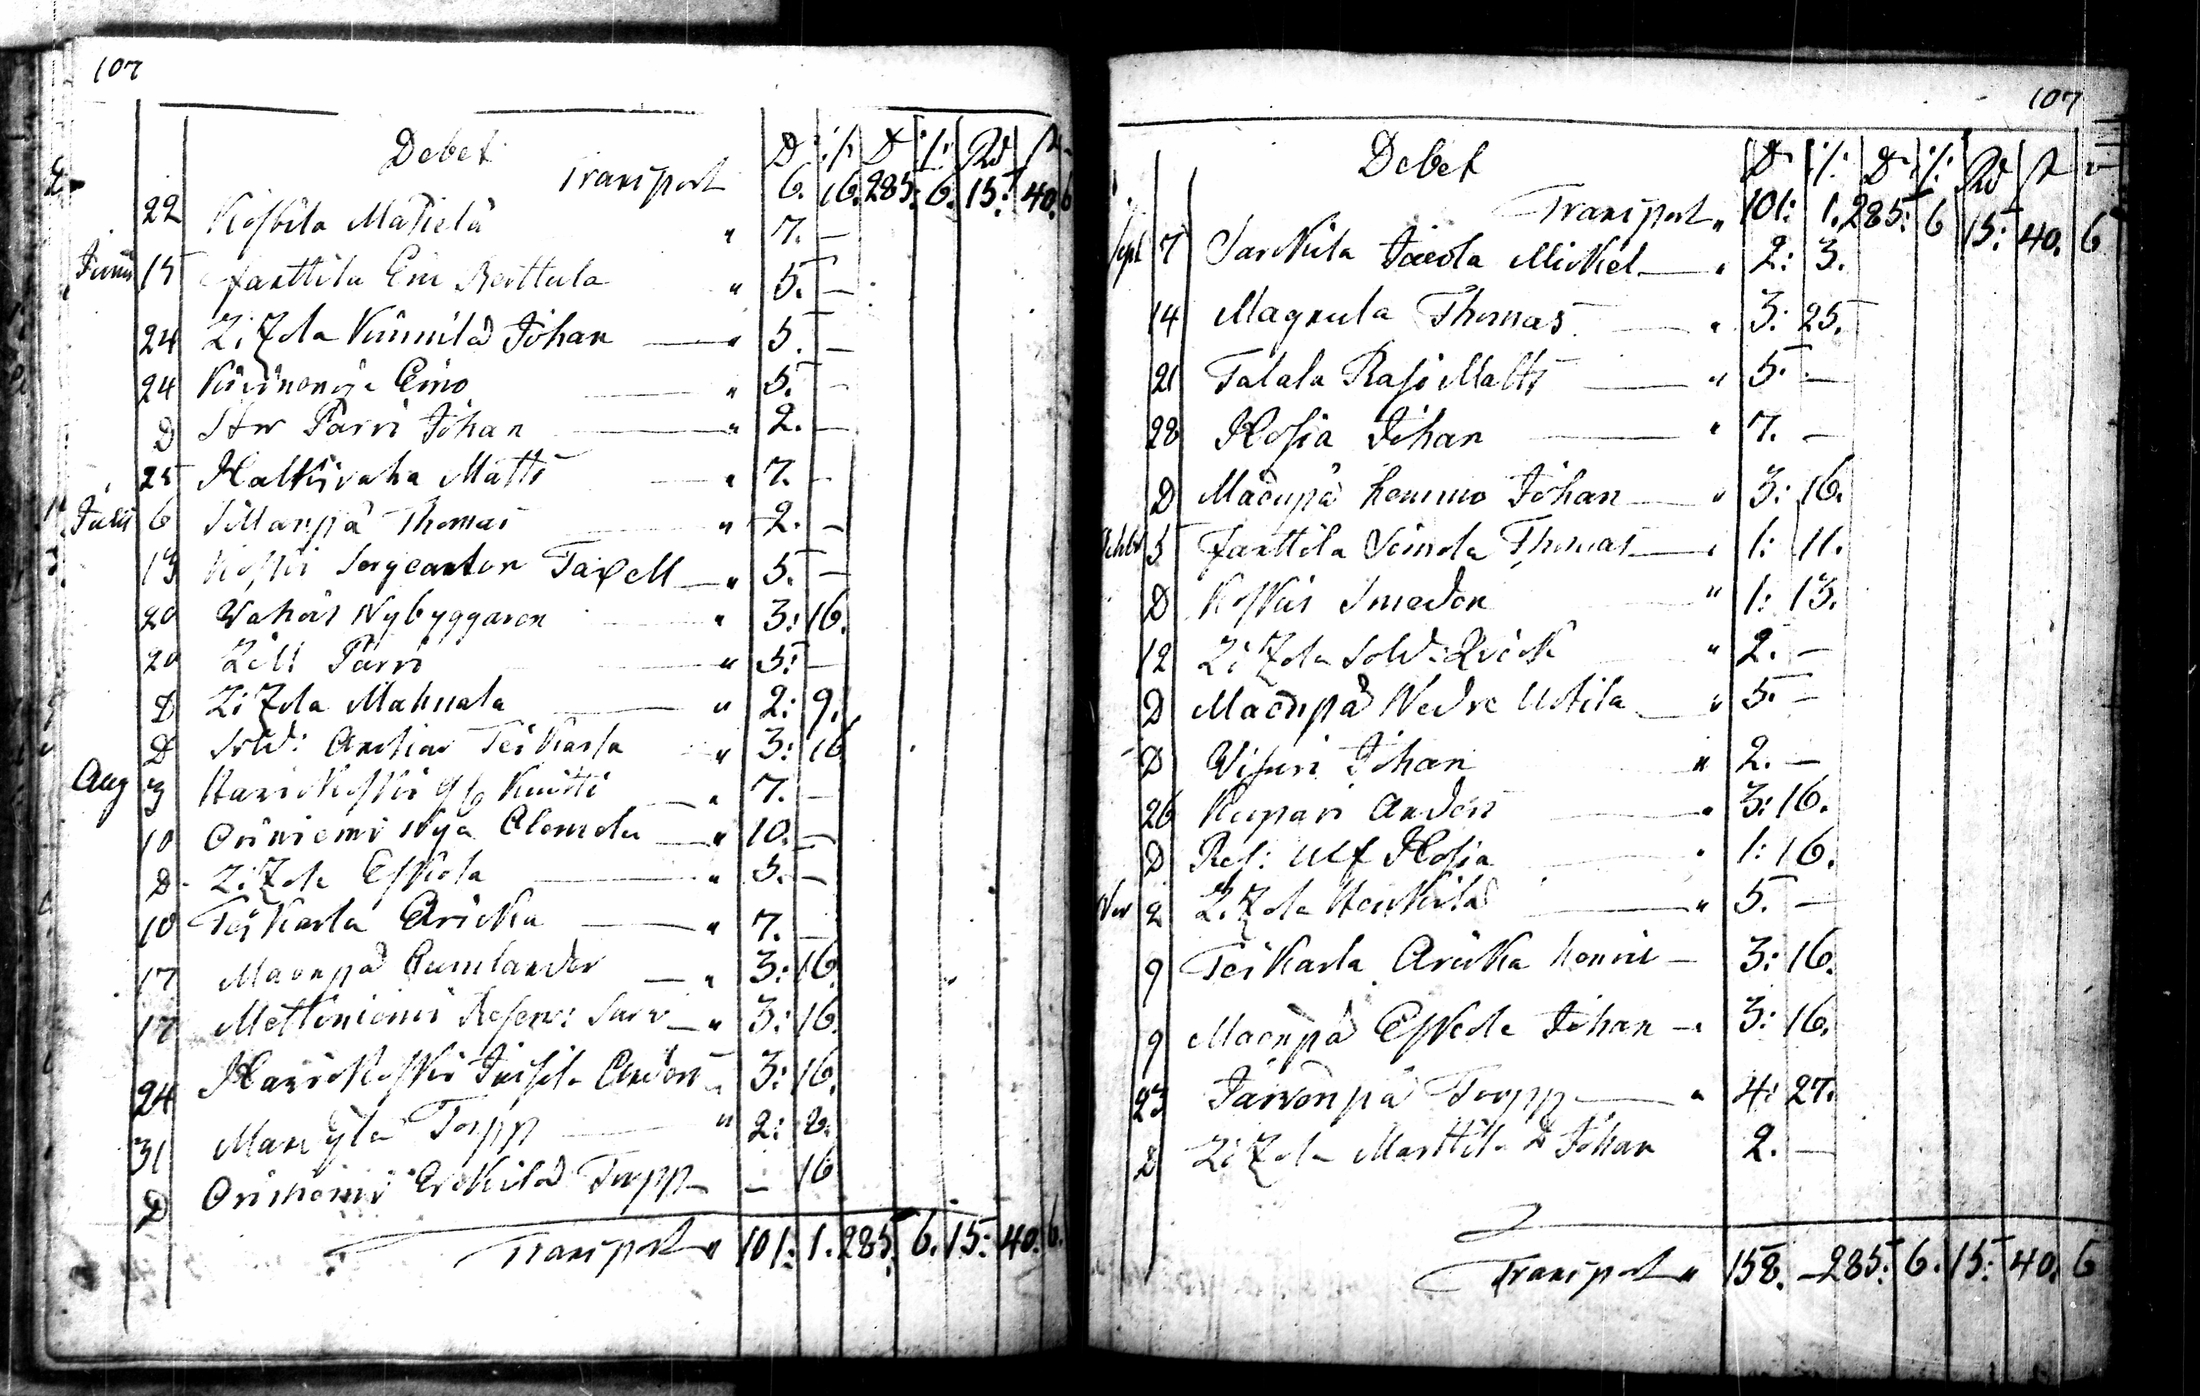 107
Debet D :/: D :/: Rd
Transport 6. 16. 285: 6. 15: 40. 6
22 Koskila Mattelä " 7. —
Junii 15 Janttila Erii Berttula " 5. —
24 Zizola Kunnilad Johan — " 5. —
24 Eino — " 5. —
D Parri Johan — " 2. —
25 Halkivaha Matts — " 7. —
Julii 6 Sillanpä Thomas — " 2. —
13 Koskis Sergeanten Taxell — " 5. —
20 Vahois Nybyggaren — " 3: 16.
20 Lill Parri — " 5: —
D Zizola Mahnala — " 2: 9.
D Sold: Teiskarla " 3: 16
Aug 3 Harrikoskis — " 7. —
10 Orihiemi Nya Alomola — " 10. —
D Zizola Eskola — " 5. —
10 Teiskarla Aricka — " 7. —
17 Maenpä Aumlander — " 3: 16.
17 Mettiniemis — " 3: 16.
24 Harrikoskis Anders " 3: 16.
31 Torpp — " 2: 2.
D Erckilad Torpp — — 16
Transport " 101: 1. 285. 6. 15: 40. 6.
107
Debet D :/: D :/: Rd
Transport " 101: 1. 285: 6 15: 40. 6
Sept 7 Sarkila Jaecola Mickel — " 2: 3.
14 Magnula Thomas — " 3: 25.
21 Talala Rasi Matts — " 5. —
28 Hosia Johan — " 7. —
D Maenpä hemmo Johan — " 3: 16.
5 Janttila Thomas — " 1: 11.
D Koskis Smeden " 1: 13.
12 Zizola Sold: " 2. —
D Maenpä Nedre Ustila — " 5. —
D Visuri Johan " 2. —
26 Kupari Anders — " 3: 16.
D Ulf Hosia " 1: 16.
Nov 2 Zizola Heickilad — " 5. —
9 Teiskarla Aricka — 3: 16.
9 Maenpä Eskola Johan — " 3: 16.
23 Jarvenpä Torpp — " 4: 27.
D Zizola Marttila D Johan 2. —
Transport " 158. — 285: 6. 15: 40. 6